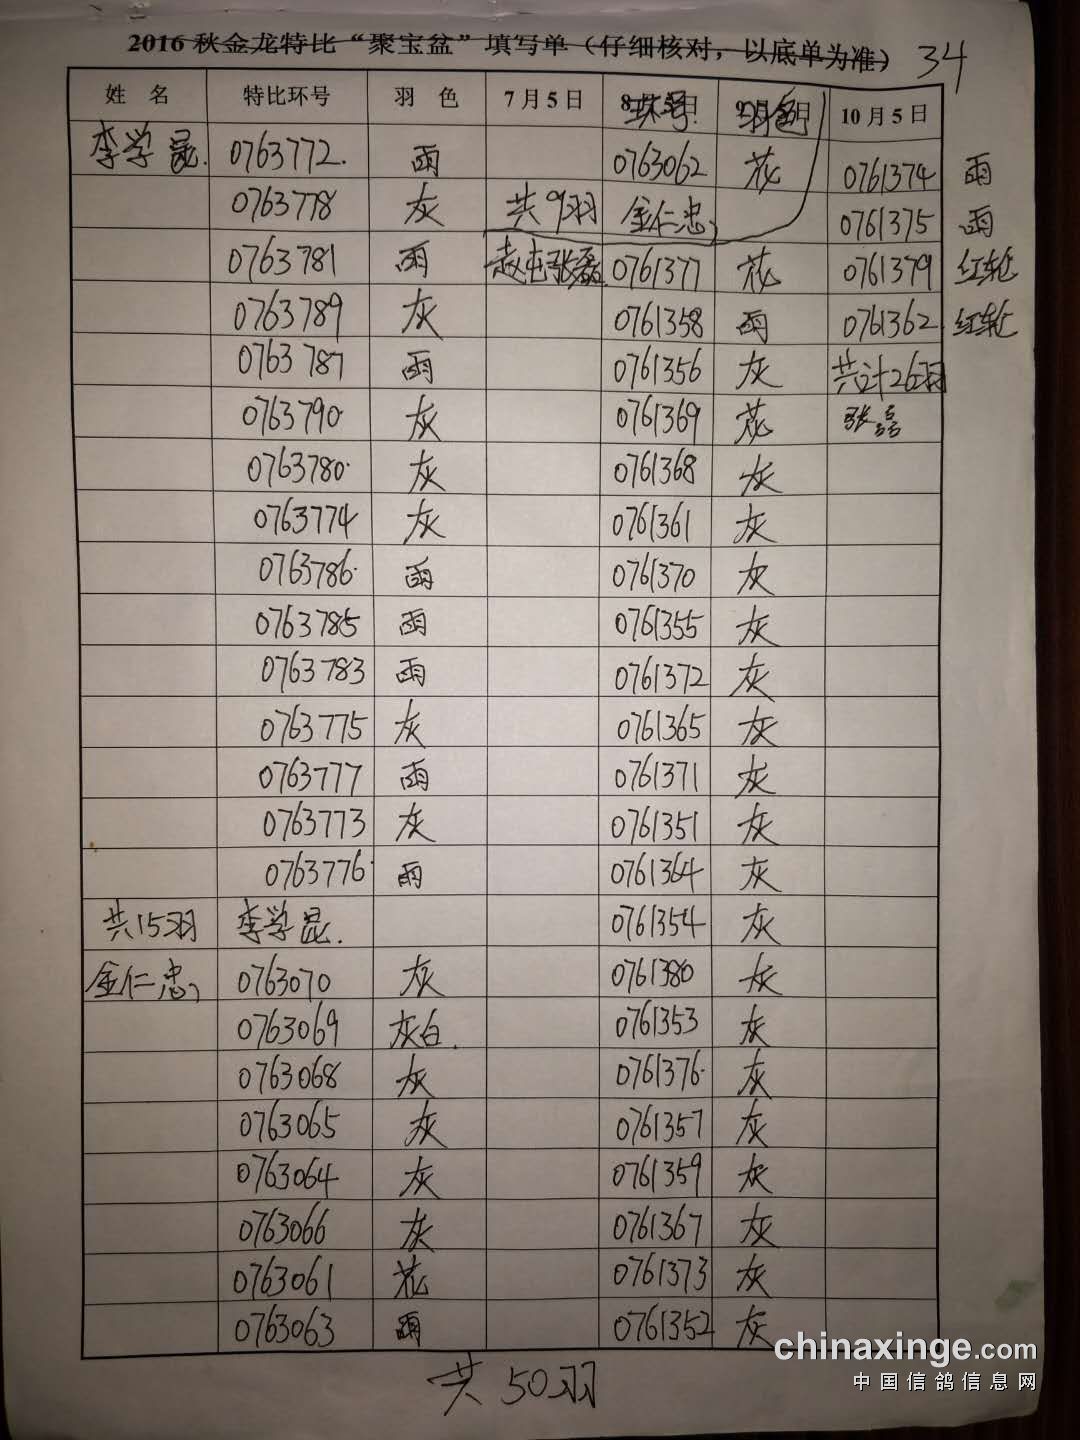 2016 秋金龙特比“聚宝盆”填写单（仔细核对，以底单为准） 34
姓 名 特比环号 羽 色 7月5日 环号 羽色 10月5日
李学昆. 0763772. 雨 0763062 花 0761374 雨
0763778 灰 共9羽 金仁忠 0761375 雨
0763781 雨 赵屯张磊 0761377 花 0761379 红轮
0763789 灰 0761358 雨 0761362 红轮
0763787 雨 0761356 灰 共计26羽
0763790 灰 0761369 花 张磊
0763780 灰 0761368 灰
0763774 灰 0761361 灰
0763786 雨 0761370 灰
0763785 雨 0761355 灰
0763783 雨 0761372 灰
0763775 灰 0761365 灰
0763777 雨 0761371 灰
0763773 灰 0761351 灰
0763776 雨 0761364 灰
共15羽 李学昆. 0761354 灰
金仁忠 0763070 灰 0761380 灰
0763069 灰白. 0761353 灰
0763068 灰 0761376 灰
0763065 灰 0761357 灰
0763064 灰 0761359 灰
0763066 灰 0761367 灰
0763061 花 0761373 灰
0763063 雨 0761352 灰
共50羽
chinaxinge.com
中国信鸽信息网